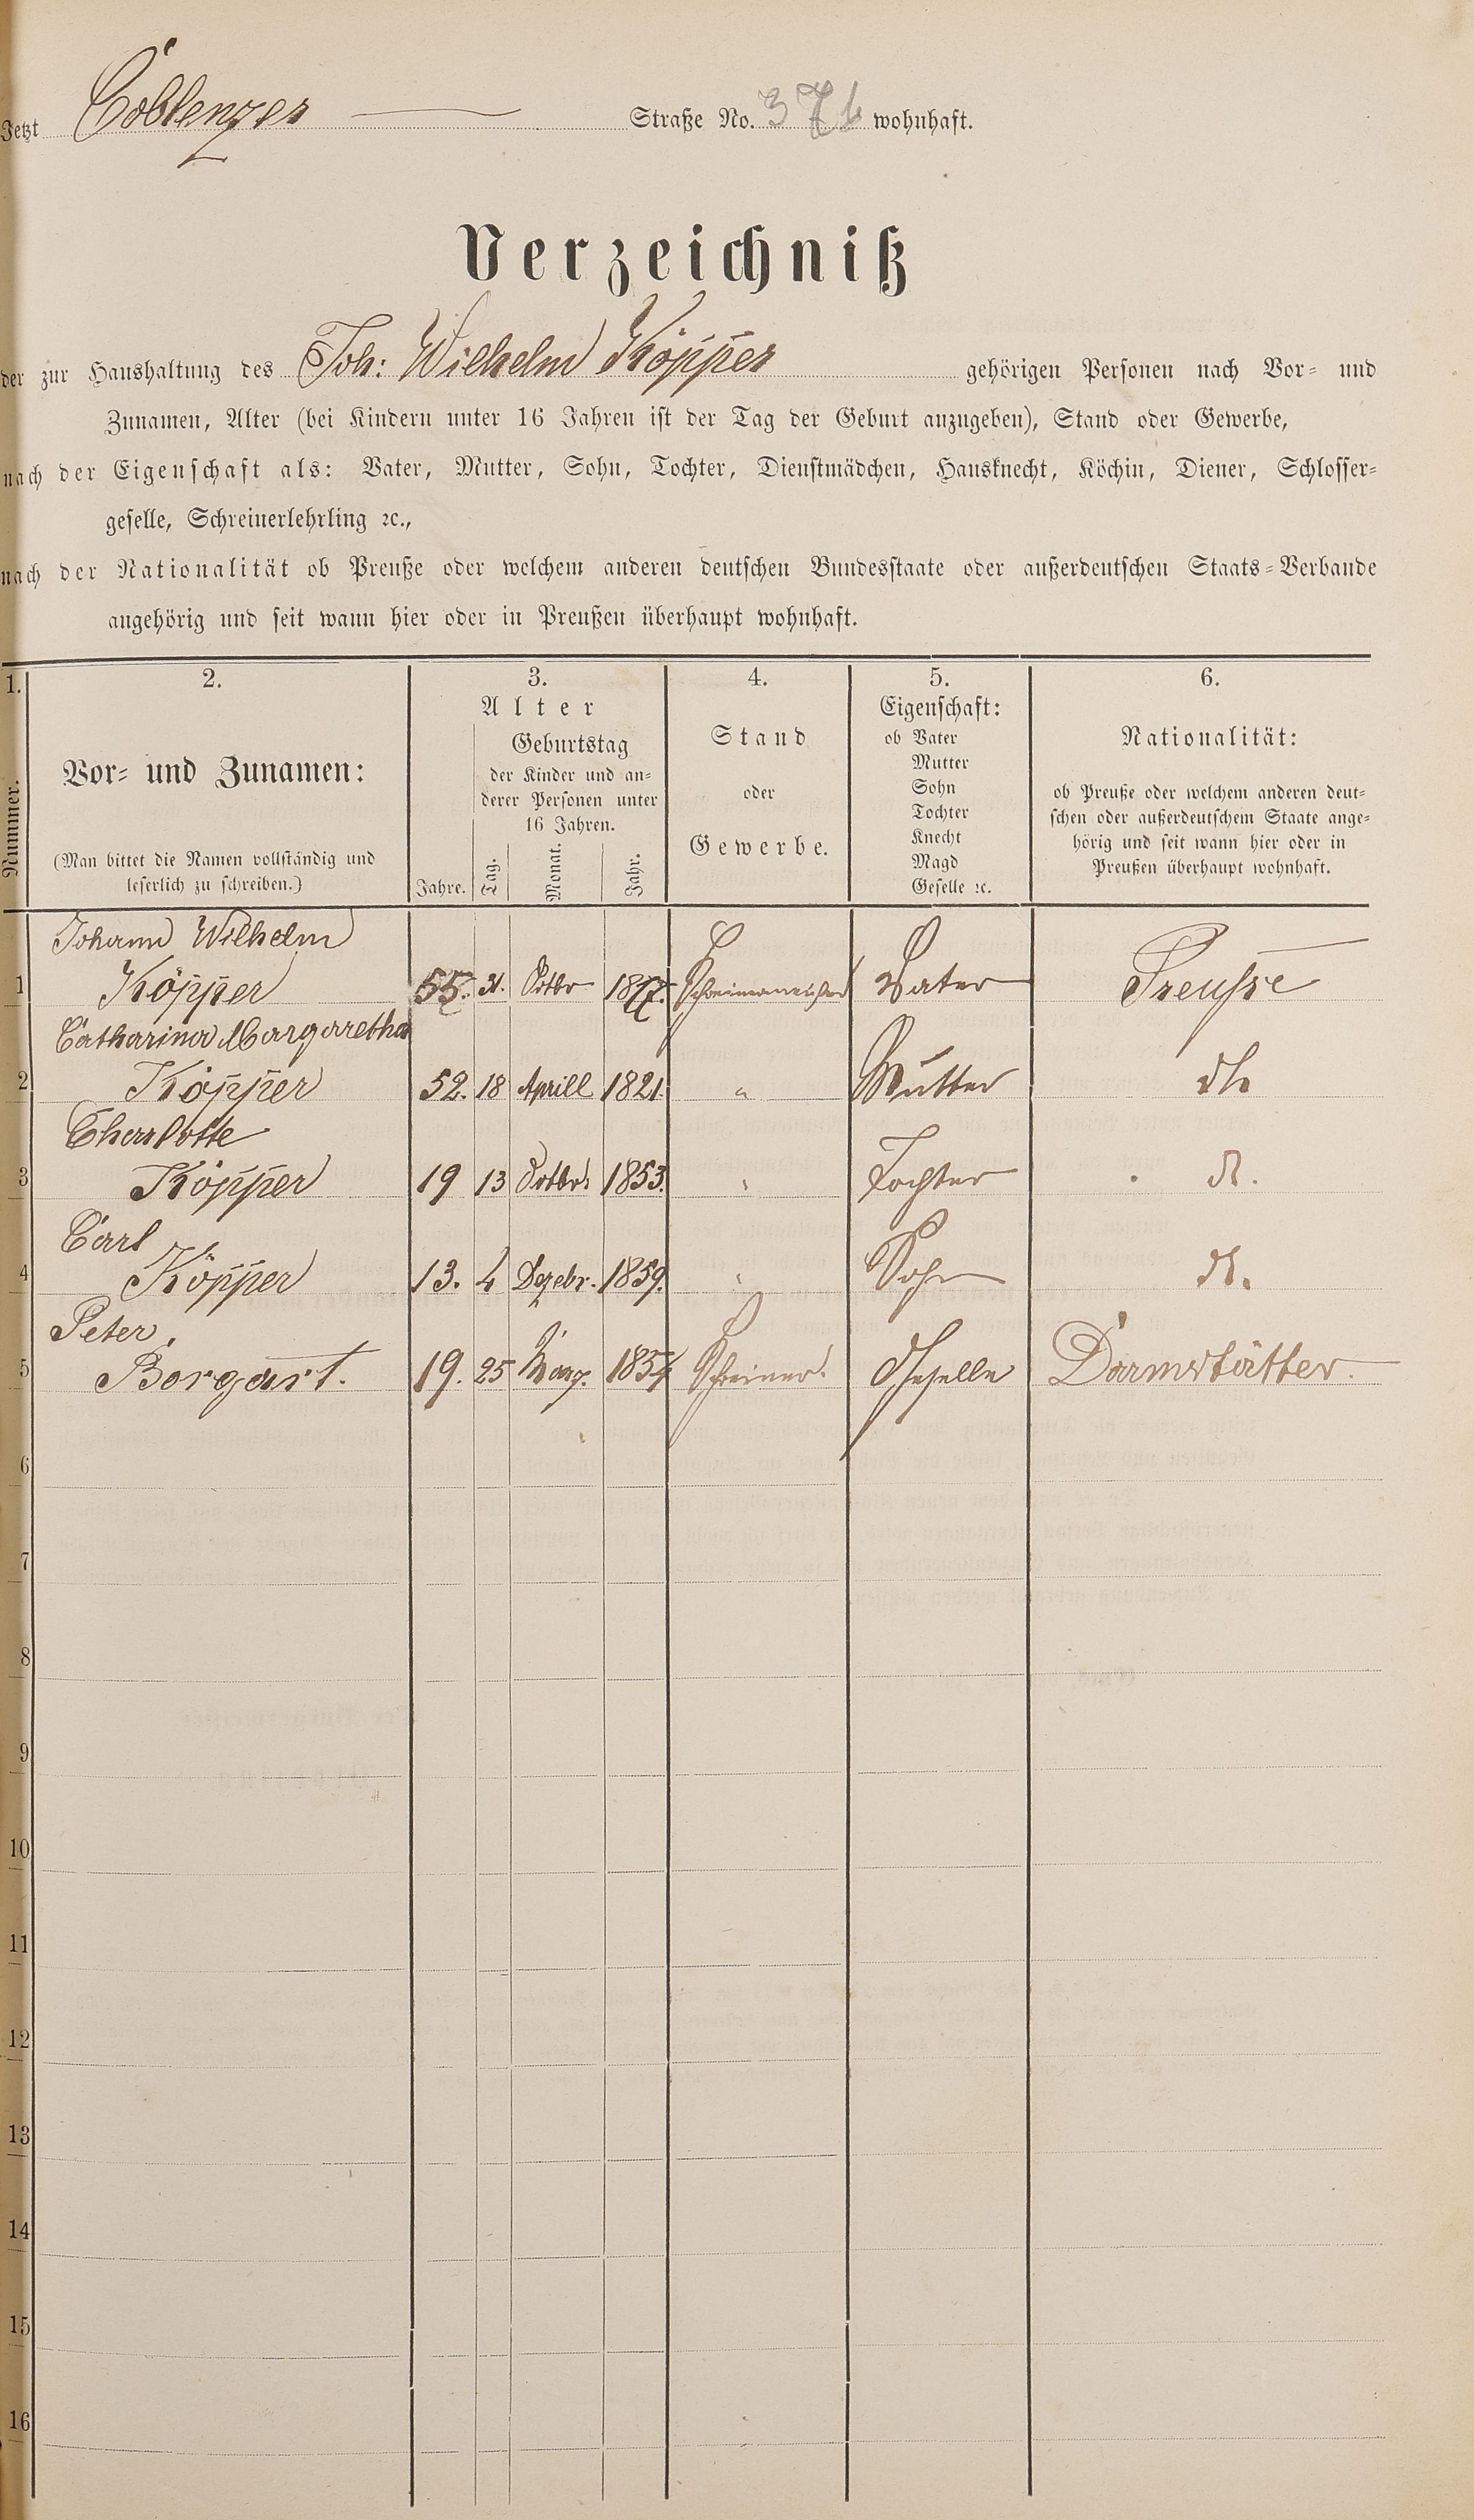 Jetzt Coblenzer Straße No. 37b wohnhaft.
Verzeichniß
der zur Haushaltung des Joh: Wilhelm Köpper gehörigen Personen nach Vor- und
Zunamen, Alter (bei Kindern unter 16 Jahren ist der Tag der Geburt anzugeben), Stand oder Gewerbe,
nach der Eigenschaft als: Vater, Mutter, Sohn, Tochter, Dienstmädchen, Hausknecht, Köchin, Diener, Schlosser-
geselle, Schreinerlehrling ꝛc.,
nach der Nationalität ob Preuße oder welchem anderen deutschen Bundesstaate oder außerdeutschen Staats-Verbande
angehörig und seit wann hier oder in Preußen überhaupt wohnhaft.
1. 2. 3. 4. 5. 6.
Nummer.
Vor- und Zunamen:
(Man bittet die Namen vollständig und
leserlich zu schreiben.)
Alter
Jahre.
Geburtstag
der Kinder und an-
derer Personen unter
16 Jahren.
Tag. Monat. Jahr.
Stand
oder
Gewerbe.
Eigenschaft:
ob Vater
Mutter
Sohn
Tochter
Knecht
Magd
Geselle ꝛc.
Nationalität:
ob Preuße oder welchem anderen deut-
schen oder außerdeutschem Staate ange-
hörig und seit wann hier oder in
Preußen überhaupt wohnhaft.
Johann Wilhelm
1 Köpper 55. 31. Octbr 1817. Schreinermeister Vater Preusse
Catharina Margaretha
2 Köpper 52. 18 Aprill 1821. " Mutter dto
Charlotte
3 Köpper 19 13 Octbr. 1853. " Tochter do.
Carl
4 Köpper 13. 4 Dezebr. 1859. " Sohn do.
Peter
5 Borgart. 19. 25 März. 1854 Schreiner. Geselle Darmstätter.
6
7
8
9
10
11
12
13
14
15
16